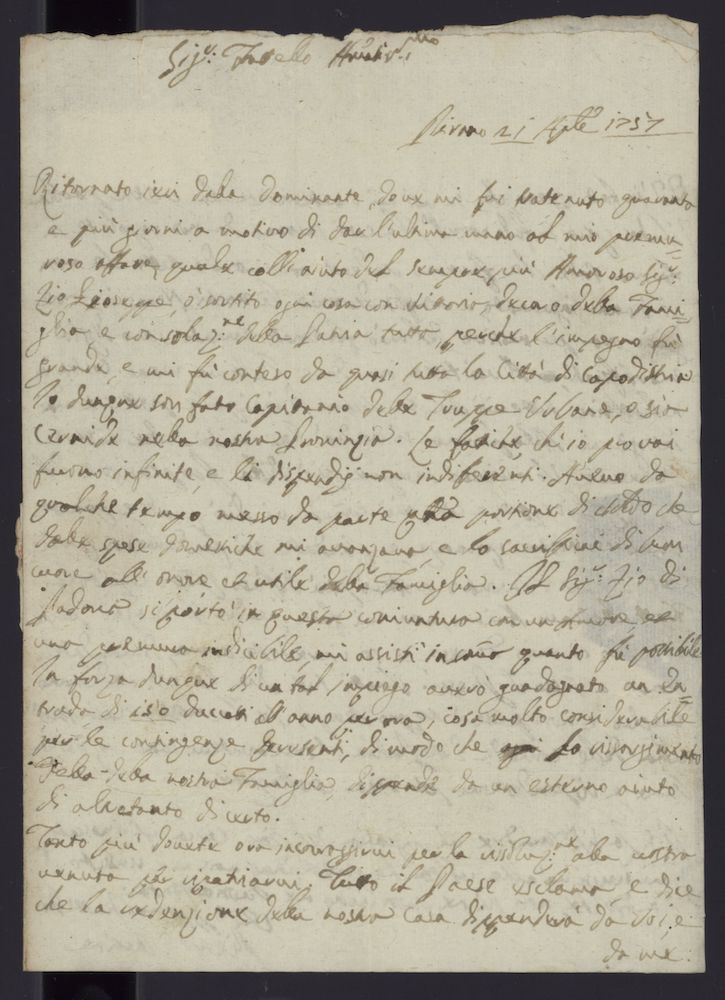 Sig.r Fratello Amatis.mo
Pirano 21 Aple 1757
Ritornato ieri dalla Dominante, dove mi fui tratenuto quaranta
e più giorni a motivo di dar l'ultima mano al mio premu=
roso affare, quale coll'aiuto del sempre più Amoroso Sig.r
Zio Gioseppe, ò sortito ogni cosa con vittoria, decoro della Fami=
glia, e consolaz.ne della Patria tutta, perchè l'impegno fù
grande, e mi fù conteso da quasi tutta la Città di Capodistria
Io dunque son fato Capitanio delle Truppe Urbane, o sia
Cernide nella nostra Provinzia. Le fatiche, ch'io provai
furono infinite, e li dispendij non indiferenti. Avevo da
qualche tempo messo da parte portione di che
dalle spese domestiche mi avanzava e lo sacrificai di buon
cuore all'onore et utile della Famiglia. Il Sig.r Zio di
Padova si portò in questa coniuntura con un Amore, et
una premura indicibile mi assistì in quanto fù possibile
In forza dunque di un tal impiego averò guadagnato un En=
trada di 150 ducati all'anno per ora, cosa molto considerabile
per le contingenze presenti, di modo che lo rissorgimento
della nostra Famiglia, dipende da un esterno aiuto
di altretanto di certo.
Tanto più dovete ora incoraggirvi per la risoluz.ne alla vostra
venuta per ripatriarvi. Tutto il Paese esclama, e dice
che la redenzione della nostra Casa dipenderà da Voi, e
da me.